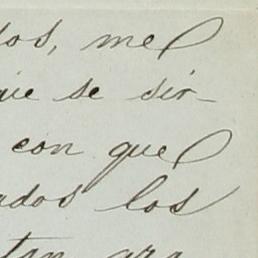 dos, me
que se sir-
con que
ados los